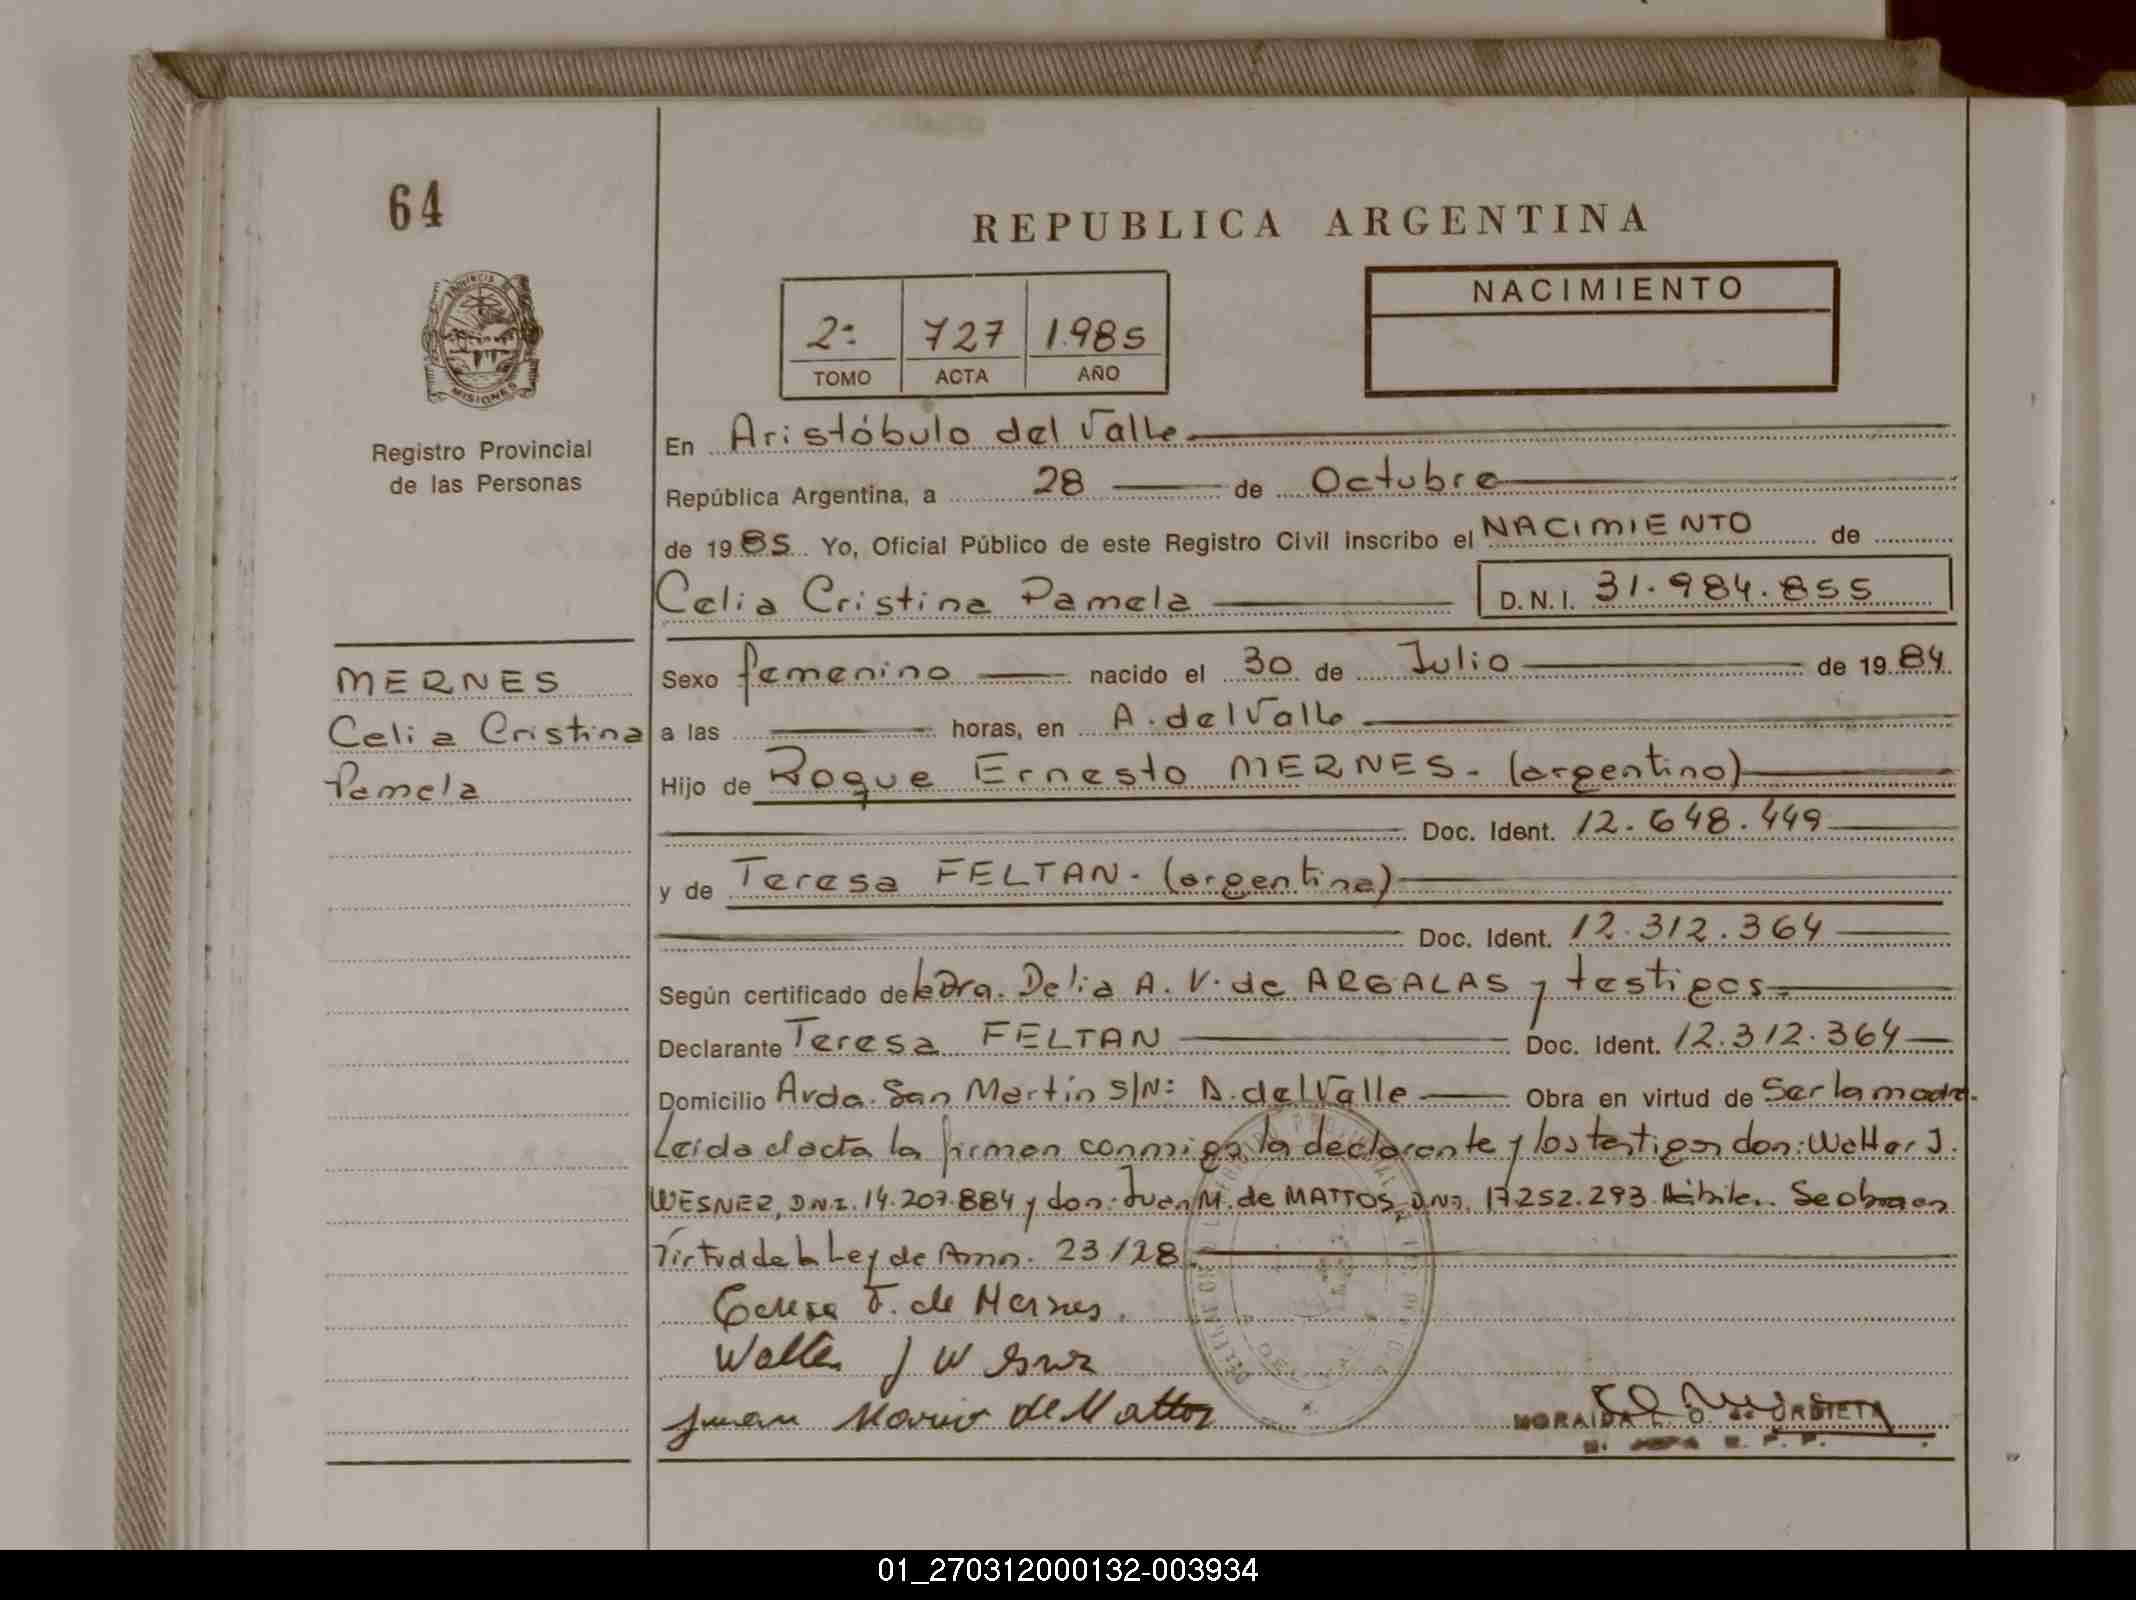 64
REPUBLICA ARGENTINA
NACIMIENTO
2º 727 1.985
TOMO ACTA AÑO
MISIONES
Registro Provincial
de las Personas
En Aristóbulo del Valle
República Argentina, a 28 de Octubre
de 1985 Yo, Oficial Público de este Registro Civil inscribo el NACIMIENTO de
Celia Cristina Pamela D.N.I. 31.984.855
MERNES
Celia Cristina
Pamela
Sexo femenino nacido el 30 de Julio de 1984
a las horas, en A. del Valle
Hijo de Roque Ernesto MERNES - (argentino)
Doc. Ident. 12.648.449
y de Teresa FELTAN - (argentina)
Doc. Ident. 12.312.364
Según certificado de la Dra. Delia A. V. de ARGALAS y testigos
Declarante Teresa FELTAN Doc. Ident. 12.312.364
Domicilio Avda. San Martín S/Nº A. del Valle Obra en virtud de Ser la madre.
Leída el acta la firman conmigo la declarante y los testigos don: Walter J.
WESNER, D.N.I. 14.207.884 y don: Juan M. de MATTOS, D.N.I. 17.252.293 Hábiles. Se obra en
Virtud de la Ley de Amn. 23/28
Teresa F. de Mernes.
Walter J Wesner
Juan Mario de Mattos
MORAIDA L. O. de URBIETA
01_270312000132-003934